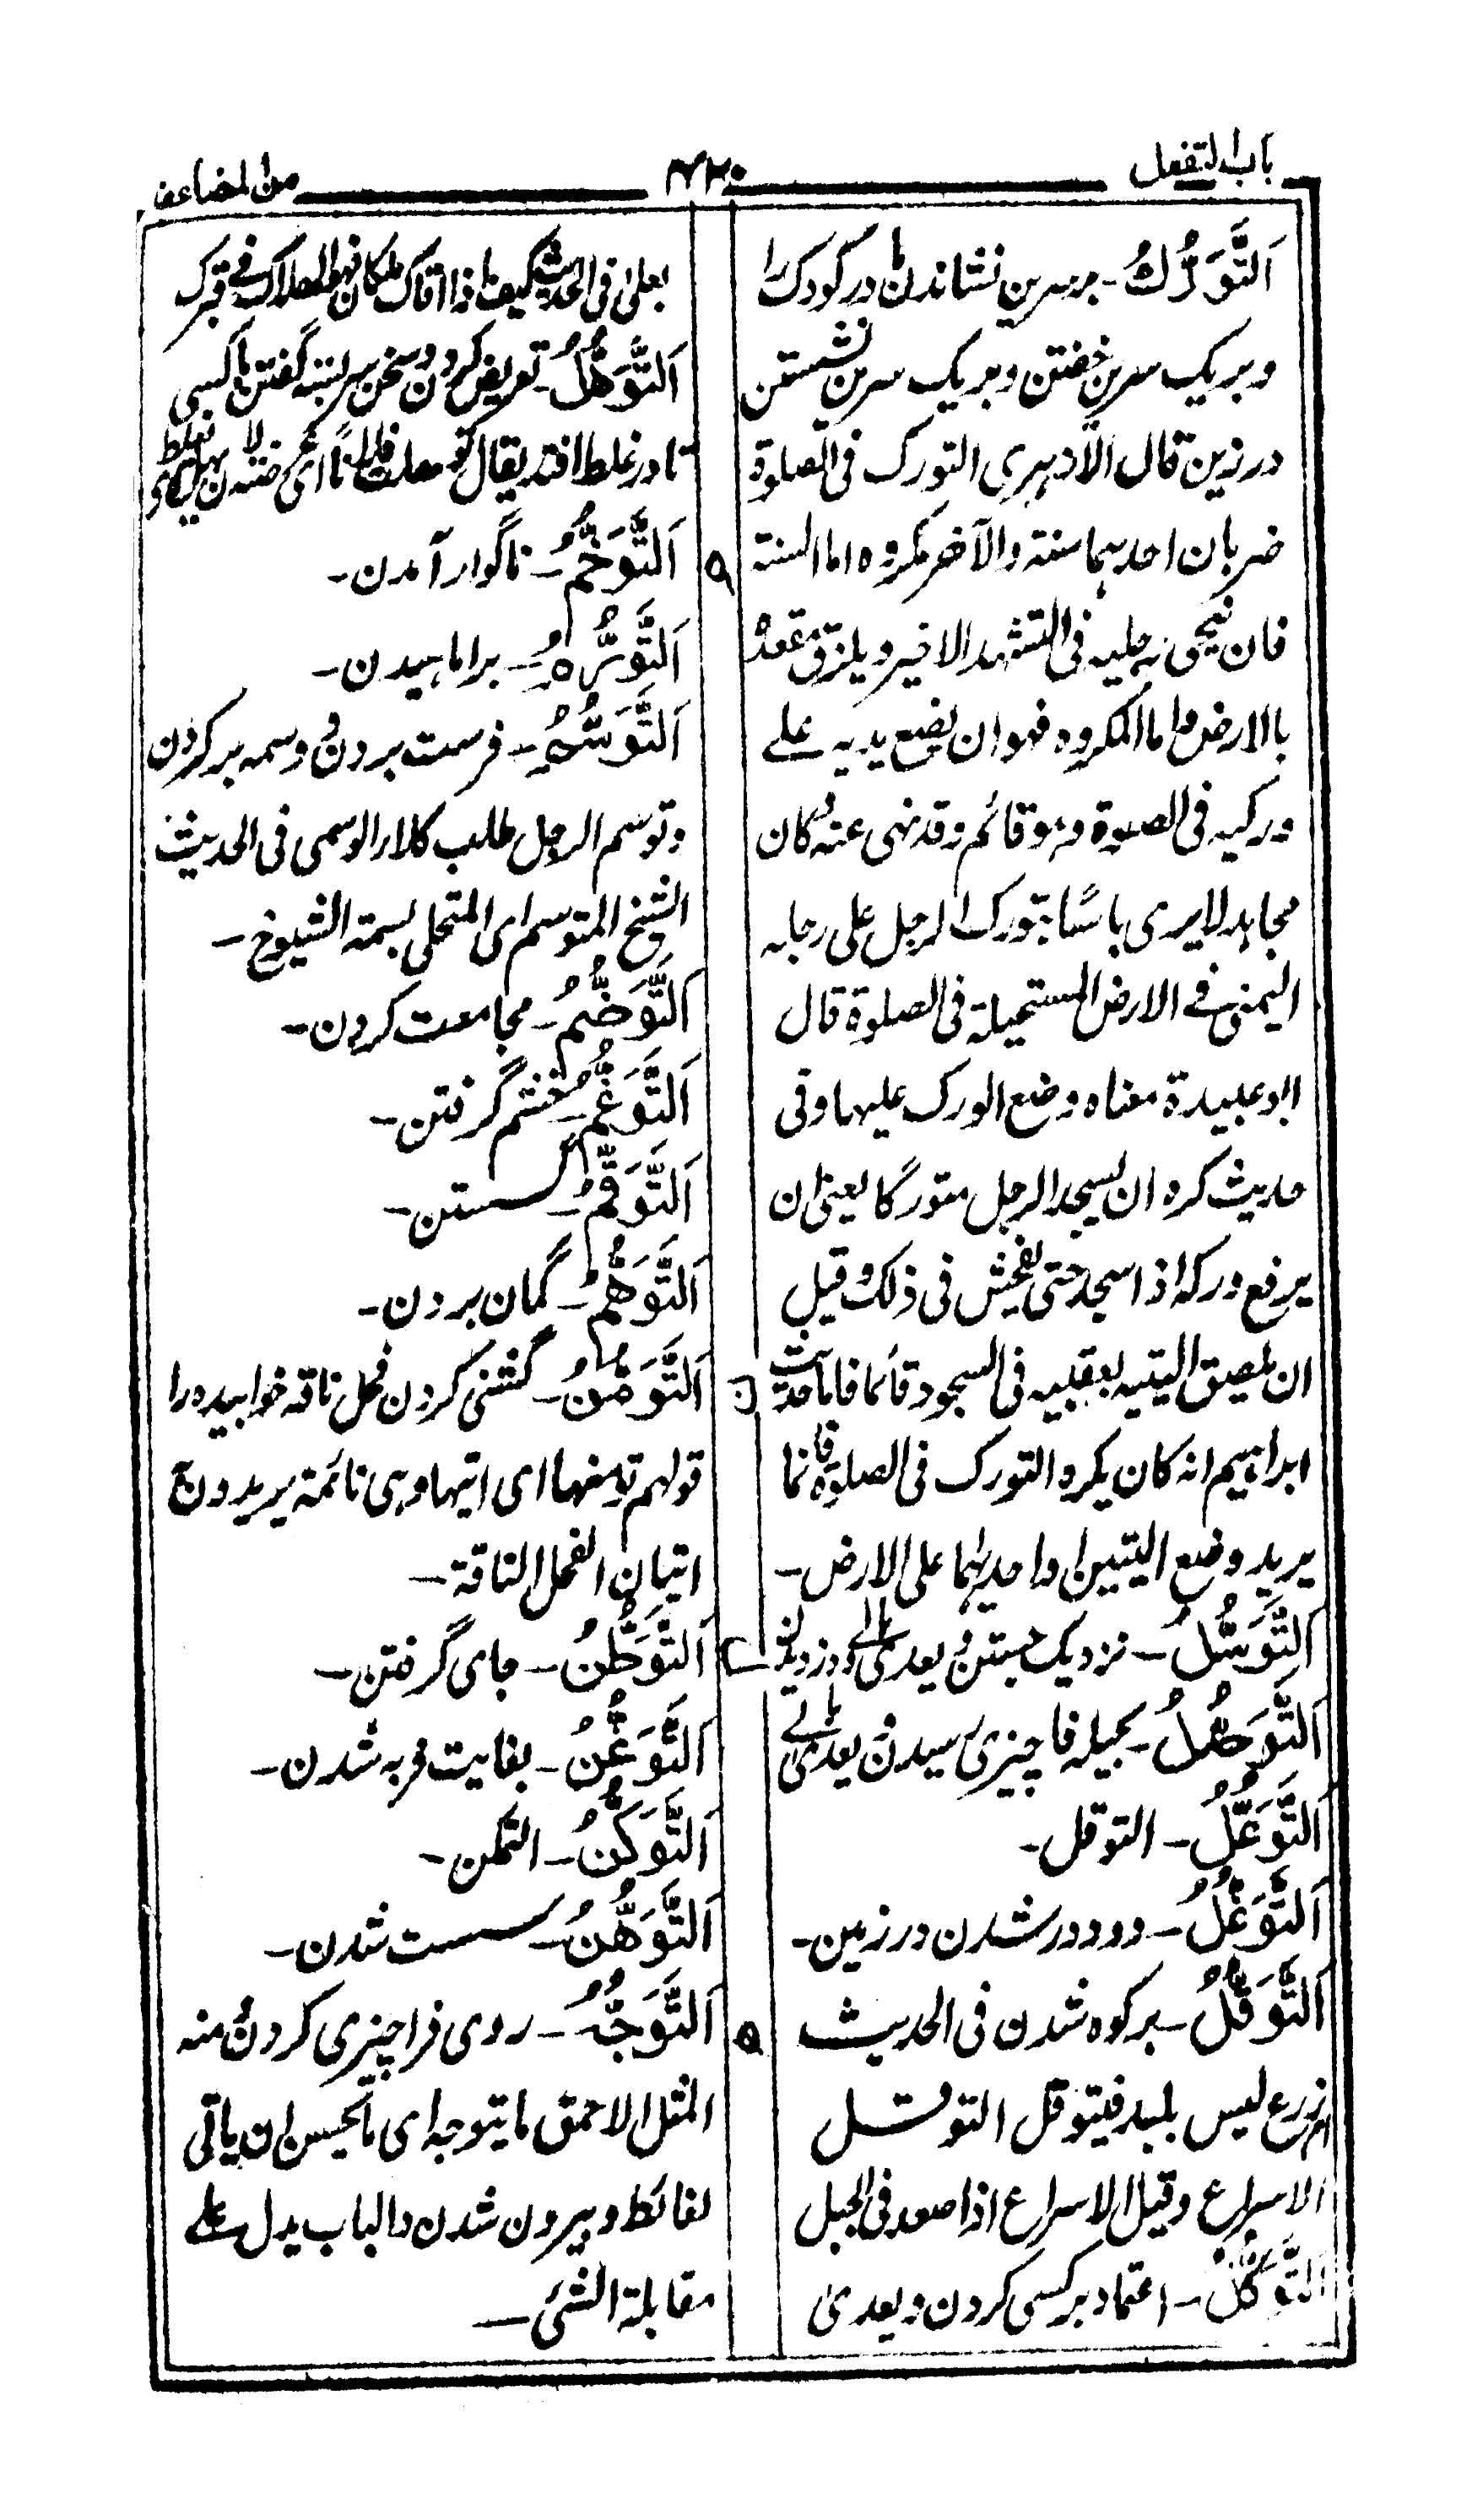 باب التفعل
۴۲۰
من المضاعف
اَلتَّوَرُّكُ - بر سرین نشاندن مادر کودک را
و بریک سرین خفتن و بریک سرین نشستن
در زین قال الازہری التورک فی الصلوة
ضربان احدہما سنة والآخر مکروہ اما السنة
فان ینحی رجلیہ فی التشہد الاخیر و یلزق مقعدہ
بالارض و اما المکروہ فہو ان یضع یدیہ علے
ورکیہ فی الصلوة و ہو قائم و قد نہی عنہ و کان
مجاہد لا یری باسًا بتورک الرجل علی رجلہ
الیمنی فے الارض المستحیلة فی الصلوة قال
ابو عبیدة معناہ وضع الورک علیہا و فی
حدیث کرہ ان یسجد الرجل متورکا یعنی ان
یرفع ورکہ اذا سجد حتی یفحش فی ذلک و قیل
ان یلصق الیتیہ بعقبیہ فی السجود قائما فاما حدیث
ابراہیم انہ کان یکرہ التورک فی الصلوة فانما
یرید وضع الیتین او احدیہما علی الارض -
اَلتَّوَسُّلُ - نزدیک جستن و یعدی بالے و دزدیدن
اَلتَّوَصُّلُ - بحیلہ فا چیزی رسیدن یعدی بالے
اَلتَّوَعُّلُ - التوقل -
اَلتَّوَغُّلُ - دوددر شدن در زمین -
اَلتَّوَقُّلُ - بر کوہ شدن فی الحدیث
ام زرع لیس بلبد فیتوقل التوقل
الاسراع و قیل الاسراع اذا صعد فی الجبل
اَلتَّوَكُّلُ - اعتماد بر کسی کردن و یعدی
بعلی فی الحدیث کیف اذا اتاک ملکان فتوکلاک فے قبرک
اَلتَّوَهُّلُ - تعریض کردن و سخن سربستہ گفتن با کسی
تا در غلط افتد یقال توہلت فلانًا ای عرضتہ لان یغلط
اَلتَّوَخُّمُ - ناگوار آمدن -
اَلتَّوَرُّمُ - براماہیدن -
اَلتَّوَسُّمُ - فرست بردن و وسمہ بر کردن
و توسم الرجل طلب کلاء الوسمی فی الحدیث
الشیخ المتوسم ای المتحلی بسمة الشیوخ -
اَلتَّوَضُّمُ - مجامعت کردن -
اَلتَّوَغُّمُ - خشم گرفتن -
اَلتَّوَقُّمُ - گسستن -
اَلتَّوَهُّمُ - گمان بردن -
اَلتَّوَسُّنُ - گشنی کردن فحل ناقہ خوابیدہ را
قولہم توسنہا ای اتیہا وہی نائمة یریدون بہ
اتیان الفحل الناقة -
اَلتَّوَطُّنُ - جای گرفتن -
اَلتَّوَغُّنُ - بغایت فربہ شدن -
اَلتَّوَكُّنُ - التمکن -
اَلتَّوَهُّنُ - سست شدن -
اَلتَّوَجُّہُ - روی فرا چیزی کردن و منہ
المثل الاحمق ما یتوجہ ای ما یحسن ان یاتی
لغائط و بیرون شدن و الباب یدل علے
مقابلة الشئ -